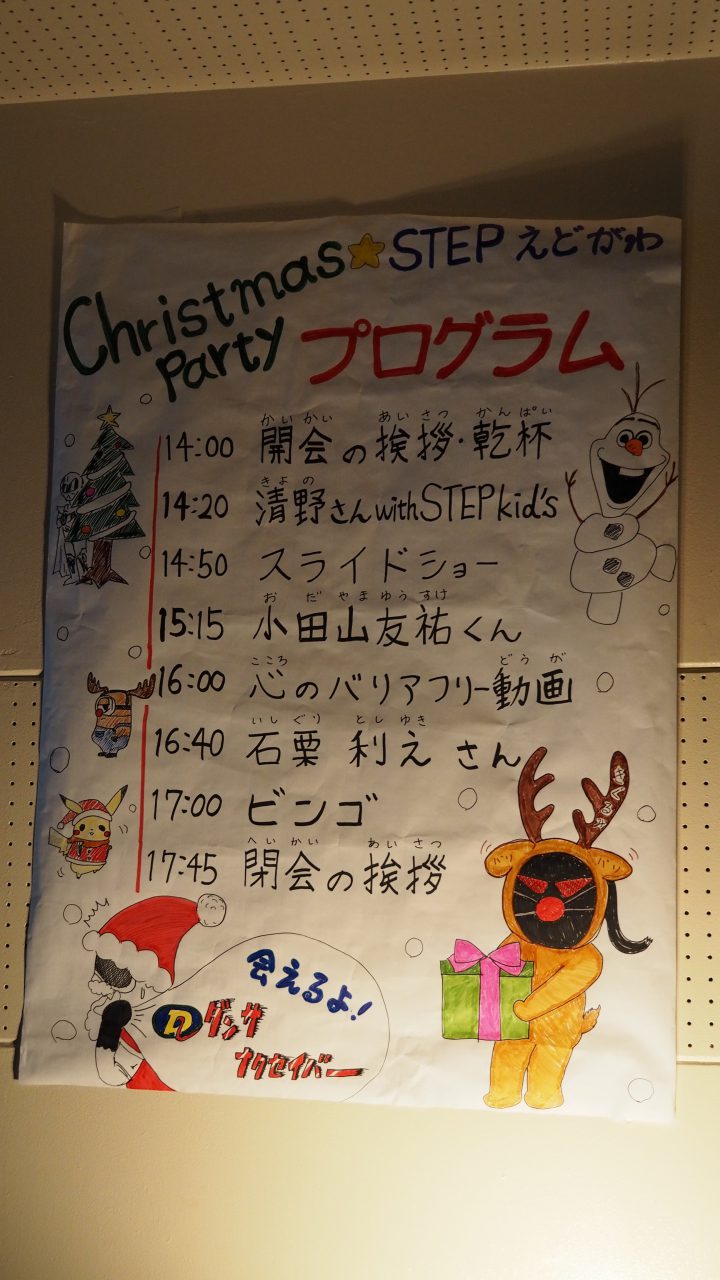 Christmas★STEPえどがわ
Party プログラム
かいかい あいさつ かんぱい
14:00 開会の挨拶・乾杯
きよの
14:20 清野さんwithSTEPkid's
14:50 スライドショー
おだやまゆうすけ
15:15 小田山友祐くん
こころ どうが
16:00 心のバリアフリー動画
いしぐり としゆき
16:40 石栗 利え さん
17:00 ビンゴ
へいかい あいさつ
17:45 閉会の挨拶
会えるよ!
D ダンサ
ナクセイバー